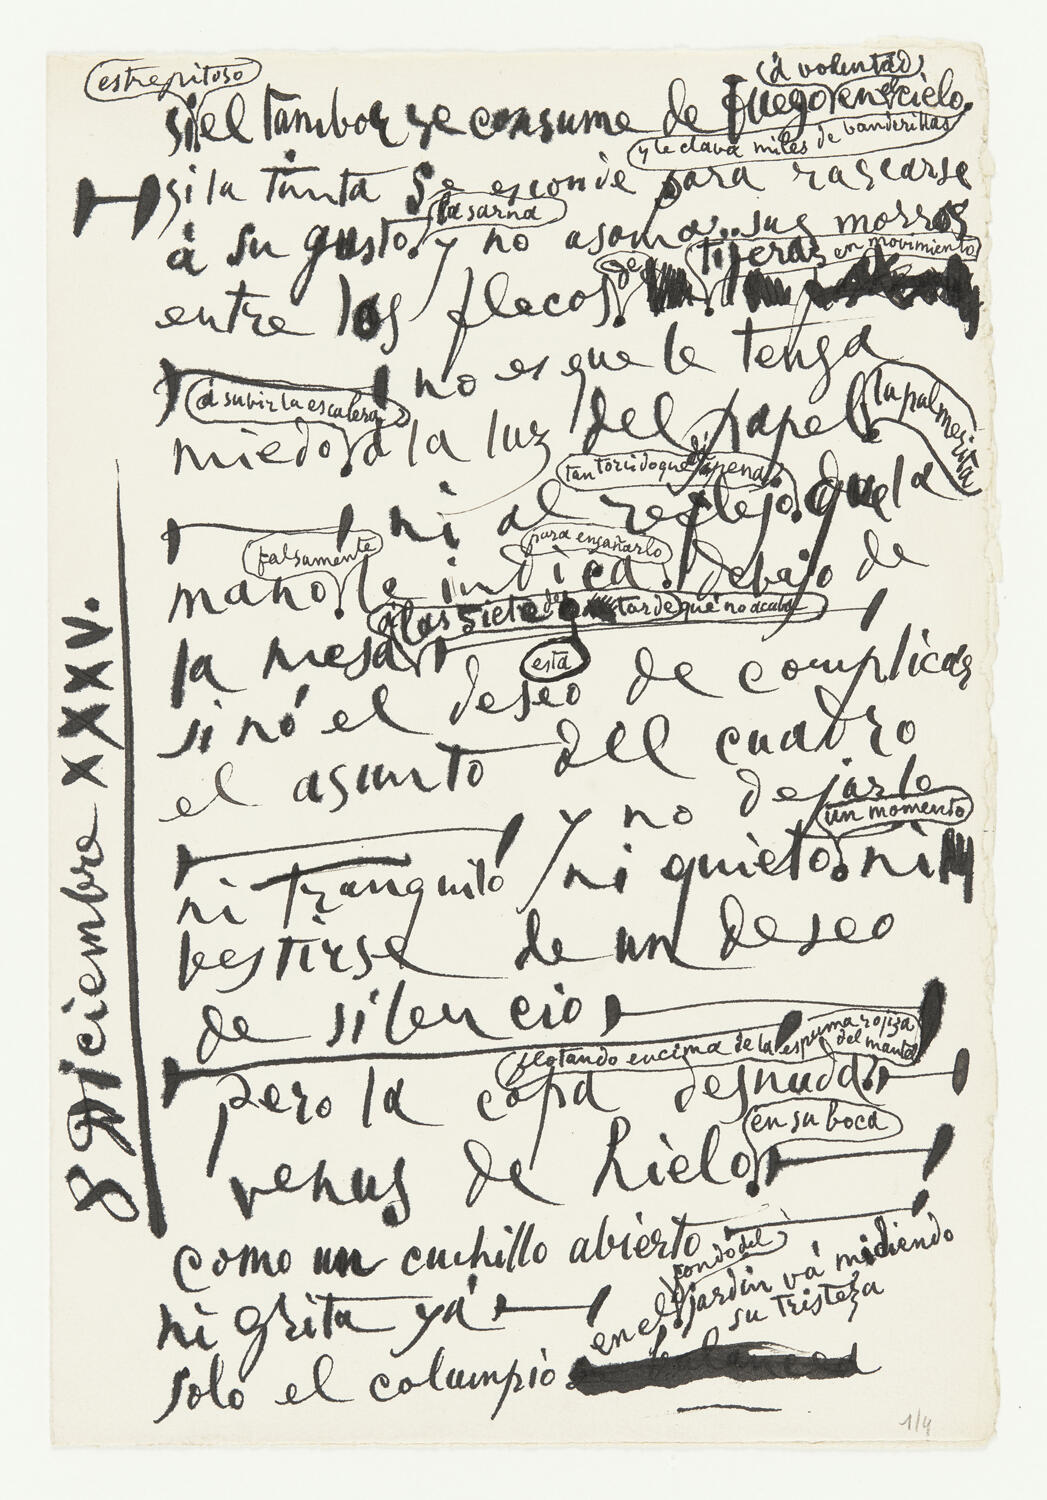 estrepitoso
(á voluntad)
si el tambor se consume de fuego en el cielo
y le clava miles de banderillas
si la tinta se esconde para rascarse
la sarna
á su gusto y no asoma sus morros
de tijeras en movimiento
entre los flecos
no es que le tenga
á subir la escalera
la palmerita
miedo á la luz del papel
tan torcido que dá pena
ni al reflejo que la
falsamente
para engañarlo
mano le indica debajo de
á las siete de tarde que no acaba
la mesa
está
si nó el deseo de complicar
el asunto del cuadro
y no dejarlo
un momento
ni tranquilo ni quieto ni
vestirse de un deseo
de silencio
flotando encima de la espuma rojiza del manto
pero la copa desnuda
en su boca
venus de hielo
como un cuchillo abierto
fondo del
ni grita yá
en el jardin vá midiendo
su tristeza
solo el columpio
8 Diciembre XXXV.
1/4